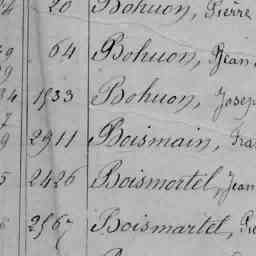 20 Bohuon, Pierre
64 Bohuon, Jean
1533 Bohuon, Josep
2911 Boismain, Fra
2426 Boismortel, Jean
2567 Boismartel, Pie